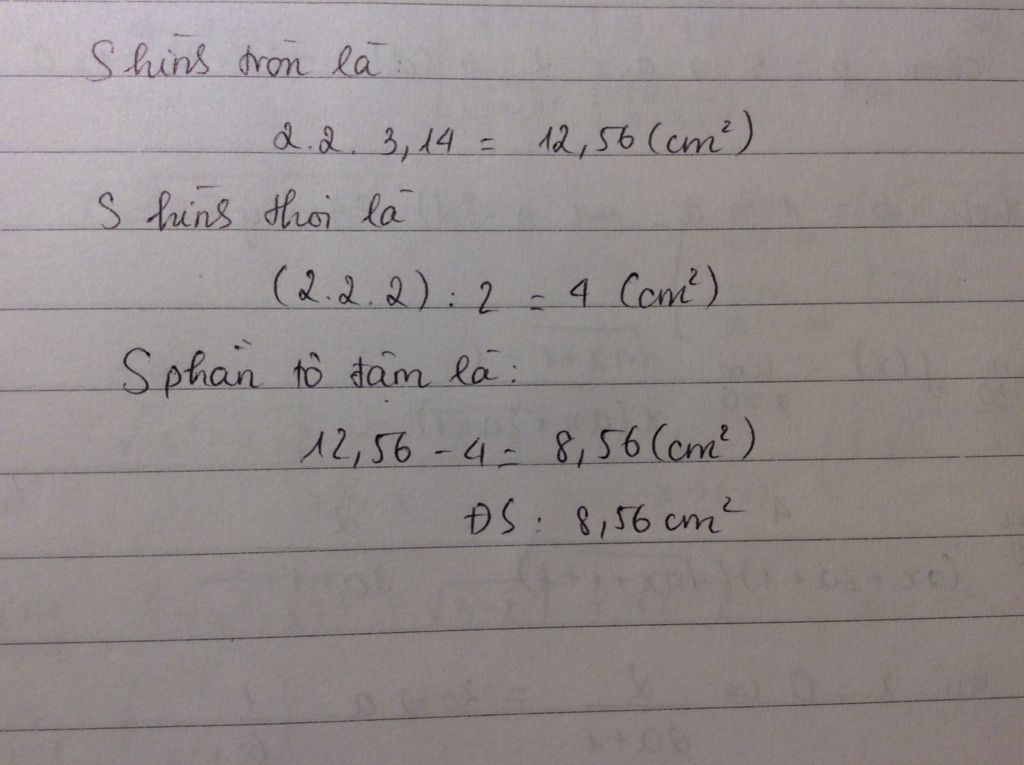 S hình tròn là:
2.2.3,14 = 12,56 (cm²)
S hình thoi là
(2.2.2) : 2 = 4 (cm²)
S phần tô đậm là:
12,56 - 4 = 8,56 (cm²)
ĐS: 8,56 cm²